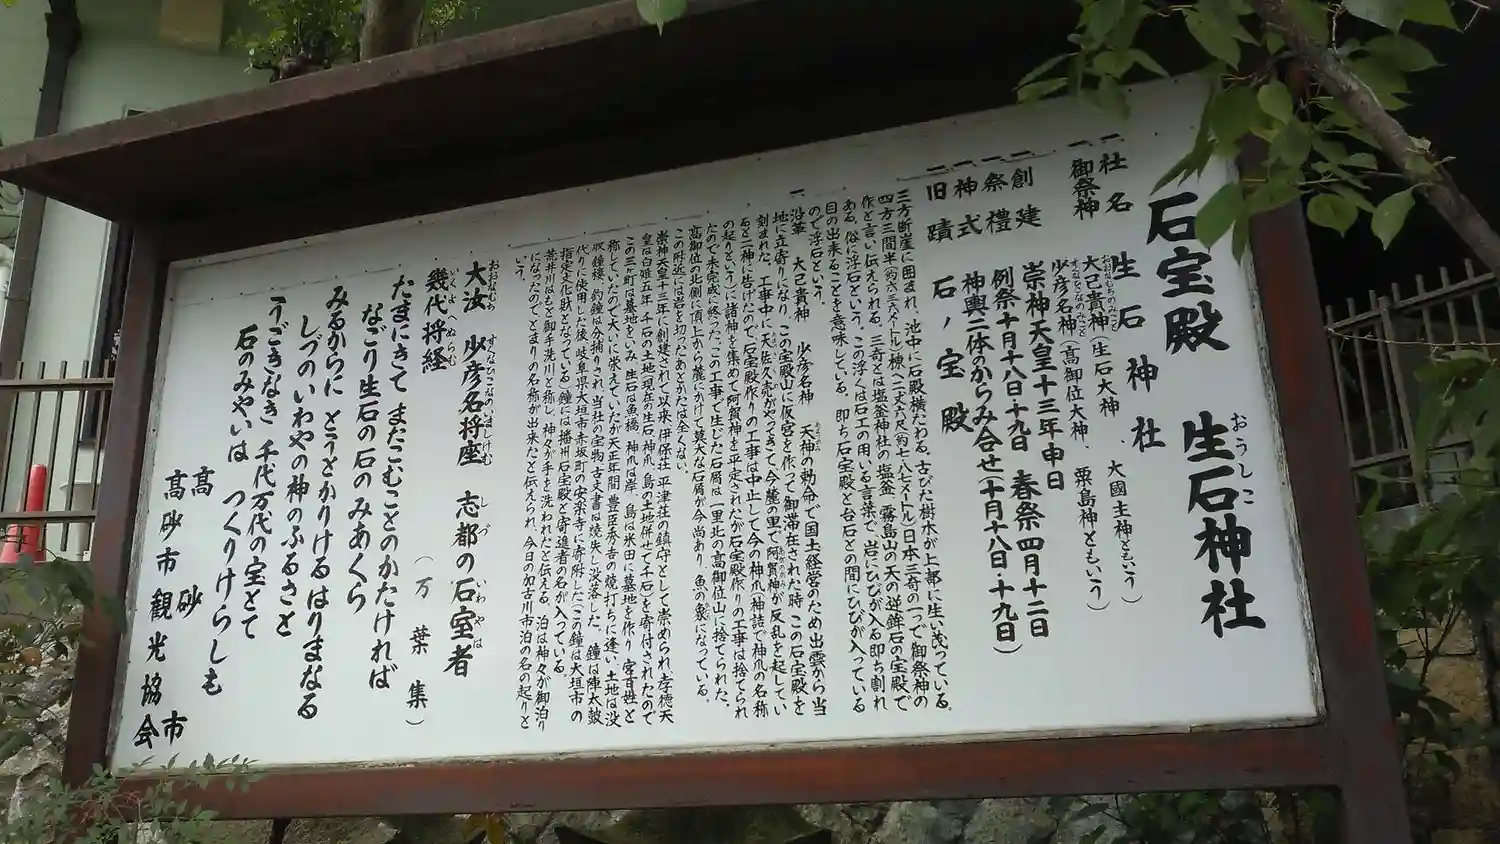 石宝殿 生石神社
おうしこ
一社名 生石神社
一御祭神 大己貴神(生石大神、大國主神ともいう)
おおなむちのみこと
少彦名神(高御位大神、粟島神ともいう)
すくなひこなのみこと
一創建 崇神天皇十三年申日
一祭禮 例祭十月十八日十九日 春祭四月十二日
一神式 神輿二体のからみ合せ(十月十八日・十九日)
一旧蹟 石ノ宝殿
三方断崖に囲まれ、池中に石殿横たわる。古びた樹木が上部に生い茂っている。
四方三間半(約六・三六メートル)棟へ二丈六尺(約七・八七メートル)日本三奇の一つで御祭神の
作と言い伝えられる。三奇とは塩釜神社の塩釜、霧島山の天の逆鉾石の宝殿で
ある。俗に浮石という。この浮くは石工の用いる言葉で、岩にひびが入る即ち割れ
目の出来ることを意味している。即ち石宝殿と台石との間にひびが入っている
ので浮石という。
一沿革 大己貴神 少彦名神 天神の勅命で国土経営のため出雲から当
地に立寄りになり、この宝殿山に仮宮を作って御滞在された時、この石宝殿を
刻まれた。工事中に天佐久売がやってきて今麓の里で、阿賀神が反乱を起してい
ると二神に告げたので、石宝殿作りの工事は中止して今の神爪(神詰で神爪の名称
の起りという)に諸神を集めて阿賀神を平定されたが石宝殿作りの工事は捨てられ
たので未完成に終った。この工事で生じた石屑は一里北の高御位山に捨てられた。
高御位の北側に頂上から麓へかけて莫大な石屑が今尚あり、魚の象になっている。
この附近には岩を切ったあとかたは全くない。
崇神天皇十三年に創建されて以来、伊保荘、平津荘の鎮守として崇められ孝徳天
皇は白雉五年、千石の土地(現在の生石、神爪、島の土地併せて千石)を寄付されたので
この三ヶ町は墓地をいみ、生石は魚橋、神爪は岸、島は米田に墓地を作り、客百姓と
称していたので大いに栄えていたが天正年間、豊臣秀吉の焼打ちに逢い、土地は没
収、鐘楼、釣鐘は分捕りされ、当社の宝物、古文書は焼失し没落した。鐘は陣太鼓
代りに使用した後、岐阜県大垣市赤坂町の安楽寺に寄附した(この鐘は大垣市の
指定文化財となっている)鐘には播州石宝殿と寄進者の名が入っている。
荒井川はもと御手洗川と称し、神々が手を洗われたと伝える。泊は神々が御泊り
になったので、とまりの名称が出来たと伝えられ、今日の加古川市泊の名の起りと
いう。
大汝 少彦名将座 志都の石室者
おおなむち すくなひこなのいましけむ しづ いわやは
幾代将経 (万葉集)
いくよへぬらむ
たまにきて またこむことのかたければ
なごり生石の石のみあくら
みるからに とうとかりけるはりまなる
しづのいわやの神のふるさと
うごきなき 千代万代の宝とて
石のみやいは つくりけらしも
高砂市
高砂市観光協会